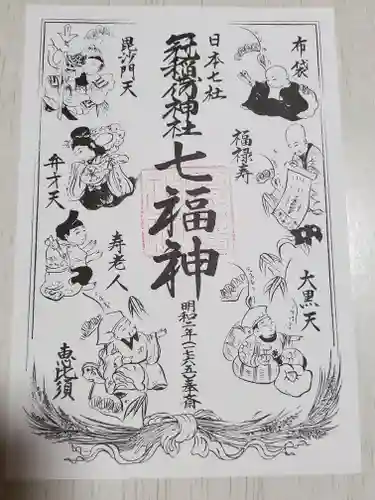 布袋
日本七社
冠稲荷神社
毘沙門天
七福神
福禄寿
弁才天
寿老人
大黒天
明和二年(一七六五)奉斎
恵比須